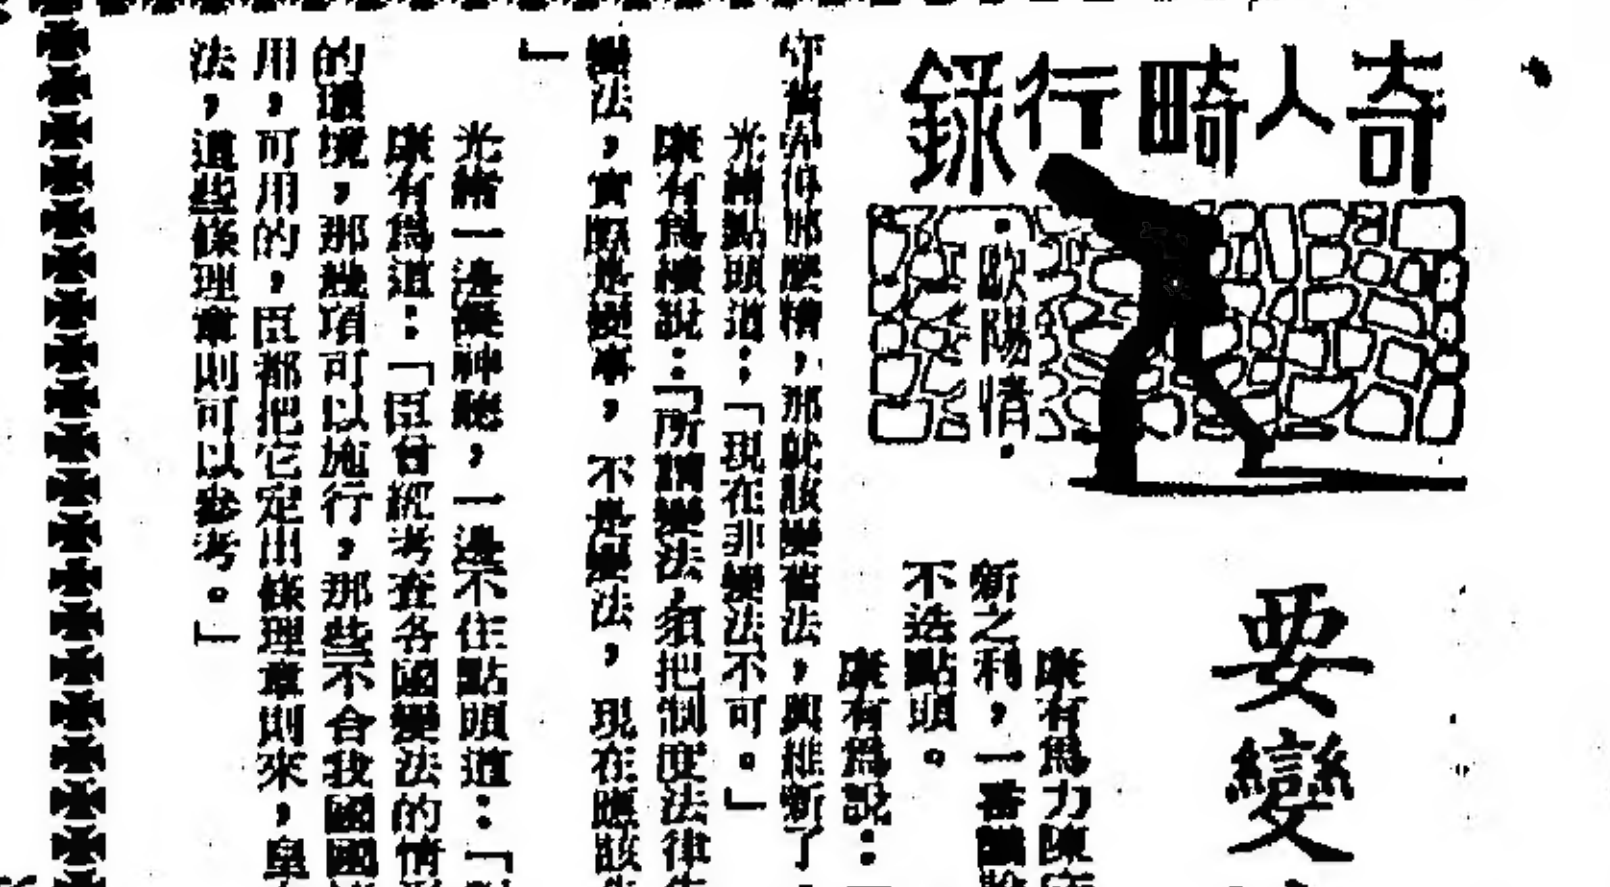 奇人畸行錄
・歐陽情・
要變
康有爲力陳
新之利，一番
不迭點頭。
康有爲說：「
守舊弄得那麼糟，那就該變舊法，與維新了
光緒點頭道：「現在非變法不可。」
康有爲續說：「所謂變法，須把制度法律
變法，實際是變事，不是變法，現在應該
」
光緒一邊凝神聽，一邊不住點頭道：「
康有爲道：「臣曾經考查各國變法的情形
的環境，那幾項可以施行，那些不合我國國
用，可用的，臣都把它定出條理章則來，皇
法，這些條理章則可以參考。」